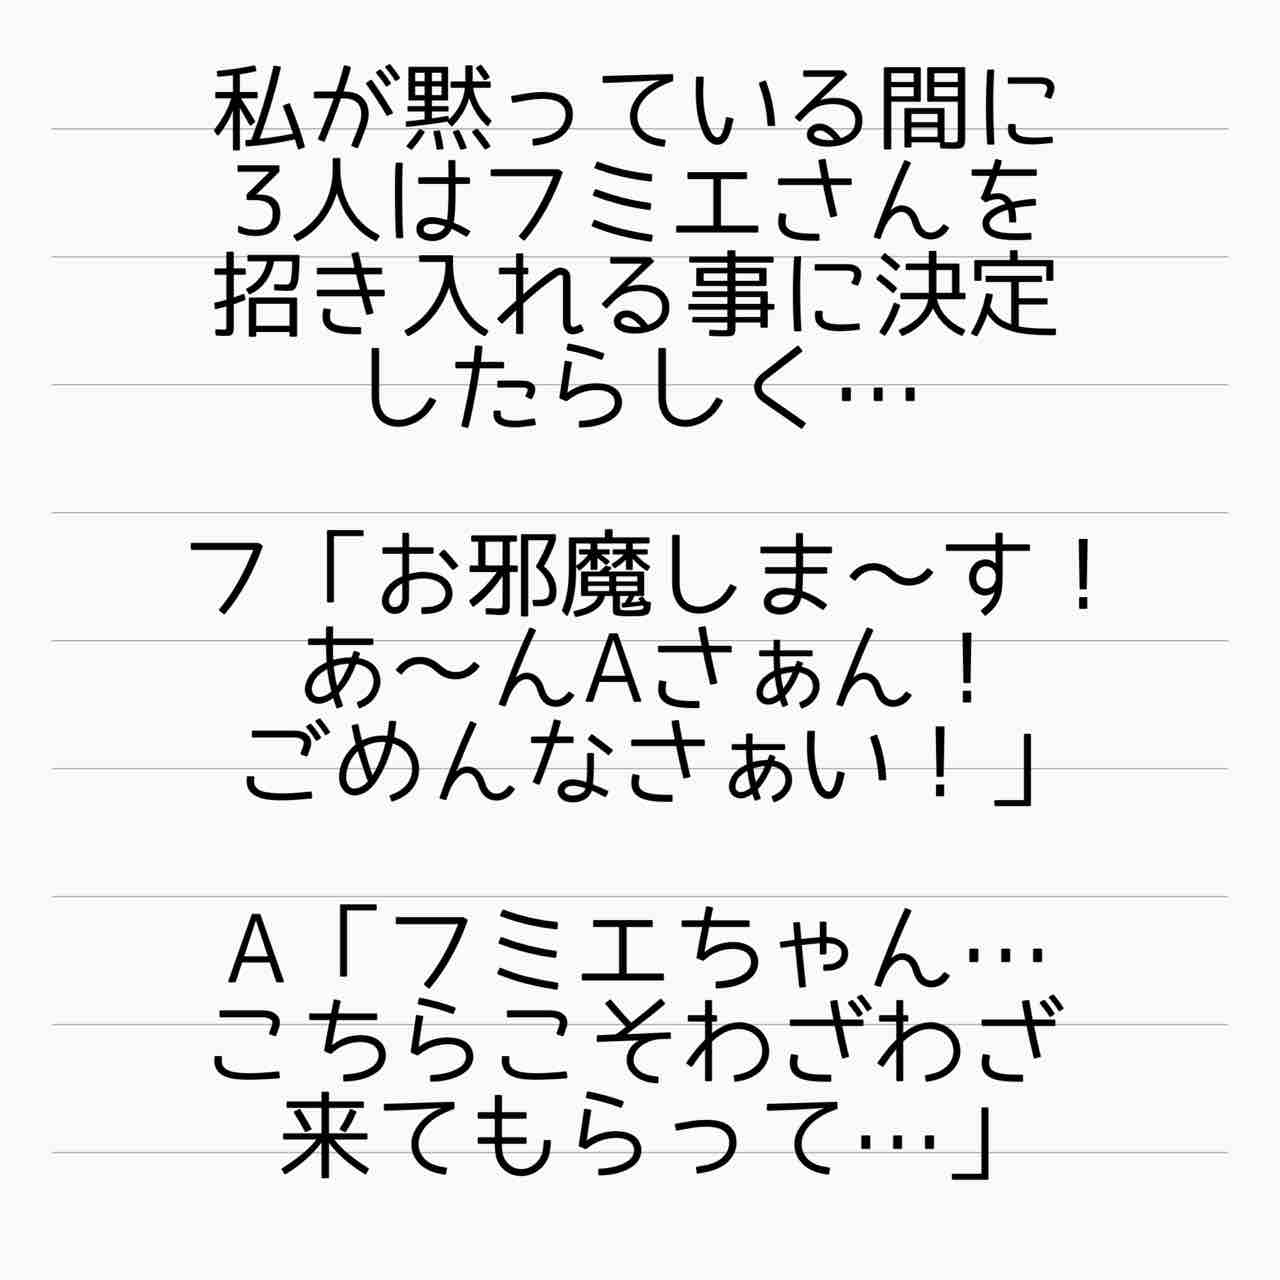 私が黙っている間に
3人はフミエさんを
招き入れる事に決定
したらしく…
フ「お邪魔しま〜す！
あ〜んAさぁん！
ごめんなさぁい！」
A「フミエちゃん…
こちらこそわざわざ
来てもらって…」